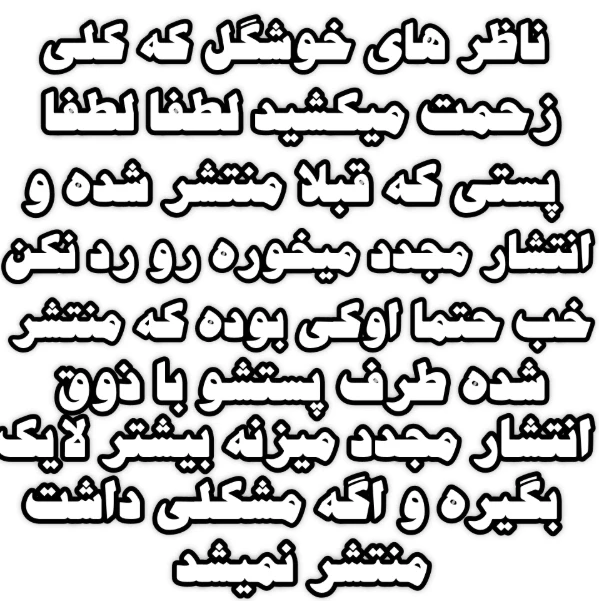 ناظر های خوشگل که کلی
زحمت میکشید لطفا لطفا
پستی که قبلا منتشر شده و
انتشار مجدد میخوره رو رد نکن
خب حتما اوکی بوده که منتشر
شده طرف پستشو با ذوق
انتشار مجدد میزنه بیشتر لایک
بگیره و اگه مشکلی داشت
منتشر نمیشد